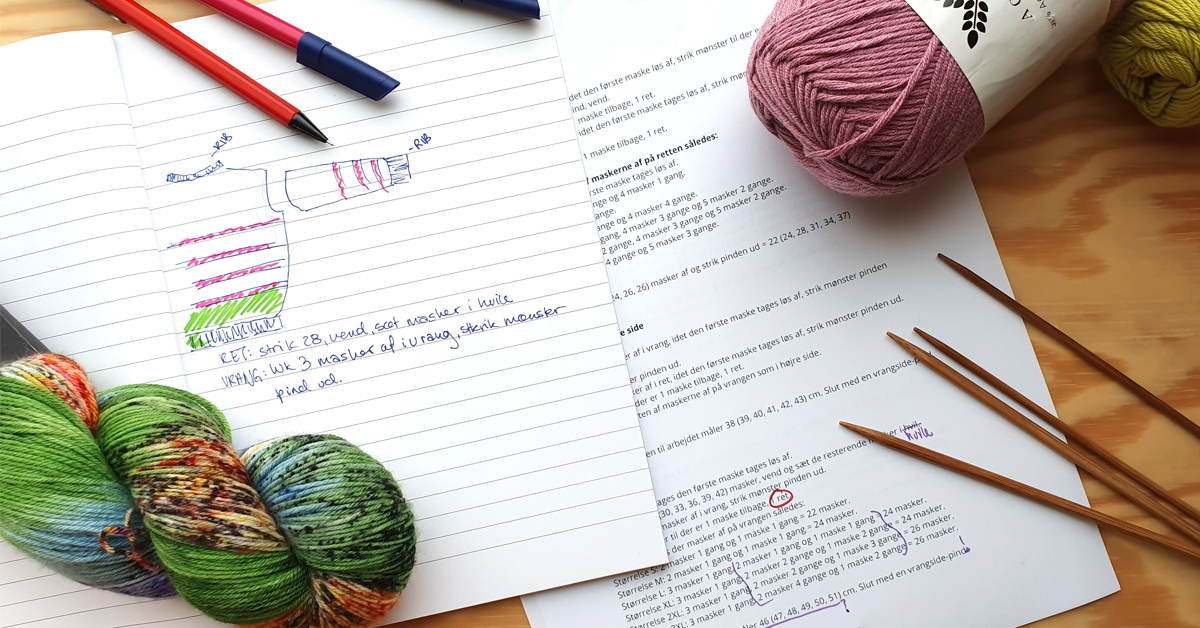 RIB
-RIB
RET: strik 28, vend, sæt masker i hvile
VRANG: luk 3 masker af i vrang, strik mønster
pind ud.
det den første maske løs af, strik mønster til der e
ind, vend.
maske tilbage, 1 ret.
idet den første maske tages løs af, strik møn
1 maske tilbage, 1 ret.
maskerne af på retten således:
rste maske tages løs af.
nge og 4 masker 1 gang.
ange.
nge og 4 masker 4 gange.
gang, 4 masker 3 gange og 5 masker 2 gange.
2 gange, 4 masker 3 gange og 5 masker 2 gange.
4 gange og 5 masker 3 gange.
24, 26, 26) masker af og strik pinden ud = 22 (24, 28, 31, 34, 37)
e side
er af i vrang, idet den første maske tages løs af, strik mønster pinden
er pinden ud.
ker af i ret, idet den første maske tages løs af, strik mønster pinden ud.
der er 1 maske tilbage, 1 ret.
ten af maskerne af på vrangen som i højre side.
en til arbejdet måler 38 (39, 40, 41, 42, 43) cm. Slut med en vrangside-p
ages den første maske tages løs af.
(30, 33, 36, 39, 42) masker, vend og sæt de resterende masker i hvil. hvile
masker af i vrang, strik mønster pinden ud.
til der er 1 maske tilbage, 1 ret.
der masker af på vrangen således:
Størrelse S: 2 masker 1 gang og 1 maske 1 gang = 22 masker.
Størrelse M: 2 masker 1 gang og 1 maske 1 gang = 24 masker.
Størrelse L: 3 masker 1 gang, 2 masker 1 gang og 1 maske 1 gang = 24 masker.
Størrelse XL: 3 masker 1 gang, 2 masker 2 gange og 1 maske 2 gange = 24 masker.
Størrelse 2XL: 3 masker 1 gang, 2 masker 2 gange og 1 maske 3 gange = 26 masker.
3XL: 3 masker 1 gang, 2 masker 4 gange og 1 maske 2 gange = 26 masker.
ler 46 (47, 48, 49, 50, 51) cm. Slut med en vrangside-pind. !
?